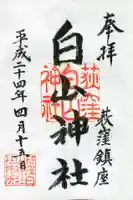 奉拝
荻窪鎮座
白山神社
荻窪
白山
神社
平成二十四年四月十五日